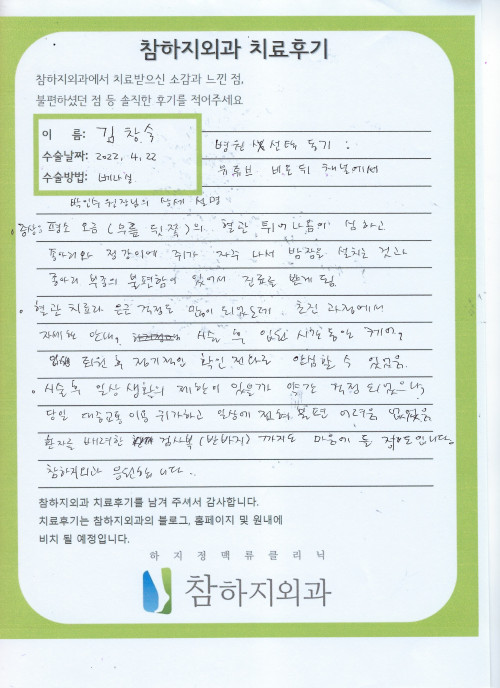 참하지외과 치료후기
참하지외과에서 치료받으신 소감과 느낀 점,
불편하셨던 점 등 솔직한 후기를 적어주세요
이 름: 김창숙
수술날짜: 2022. 4. 22
수술방법: 베나실
병원 선택 동기 :
유튜브 채널에서
박인수 원장님의 상세 설명
증상: 평소 오금 (무릎 뒷쪽)의 혈관 튀어나옴이 심하고
종아리와 정강이에 쥐가 자주 나서 밤잠을 설치는 것과
종아리 부종의 불편함이 있어서 진료를 받게 됨.
혈관 치료라 은근 걱정도 많이 되었는데 초진 과정에서
자세한 안내, 시술 후 입원 시간 동안 케어,
퇴원 후 정기적인 확인 전화로 안심할 수 있었음.
시술 후 일상 생활의 제한이 있을까 약간 걱정 되었으나,
당일 대중교통 이용 귀가하고 일상에 전혀 불편 어려움 없었음
환자를 배려한 검사복 (반바지) 까지도 마음에 들 정도입니다.
참하지외과 응원합니다.
참하지외과 치료후기를 남겨 주셔서 감사합니다.
치료후기는 참하지외과의 블로그, 홈페이지 및 원내에
비치 될 예정입니다.
하지정맥류클리닉
참하지외과